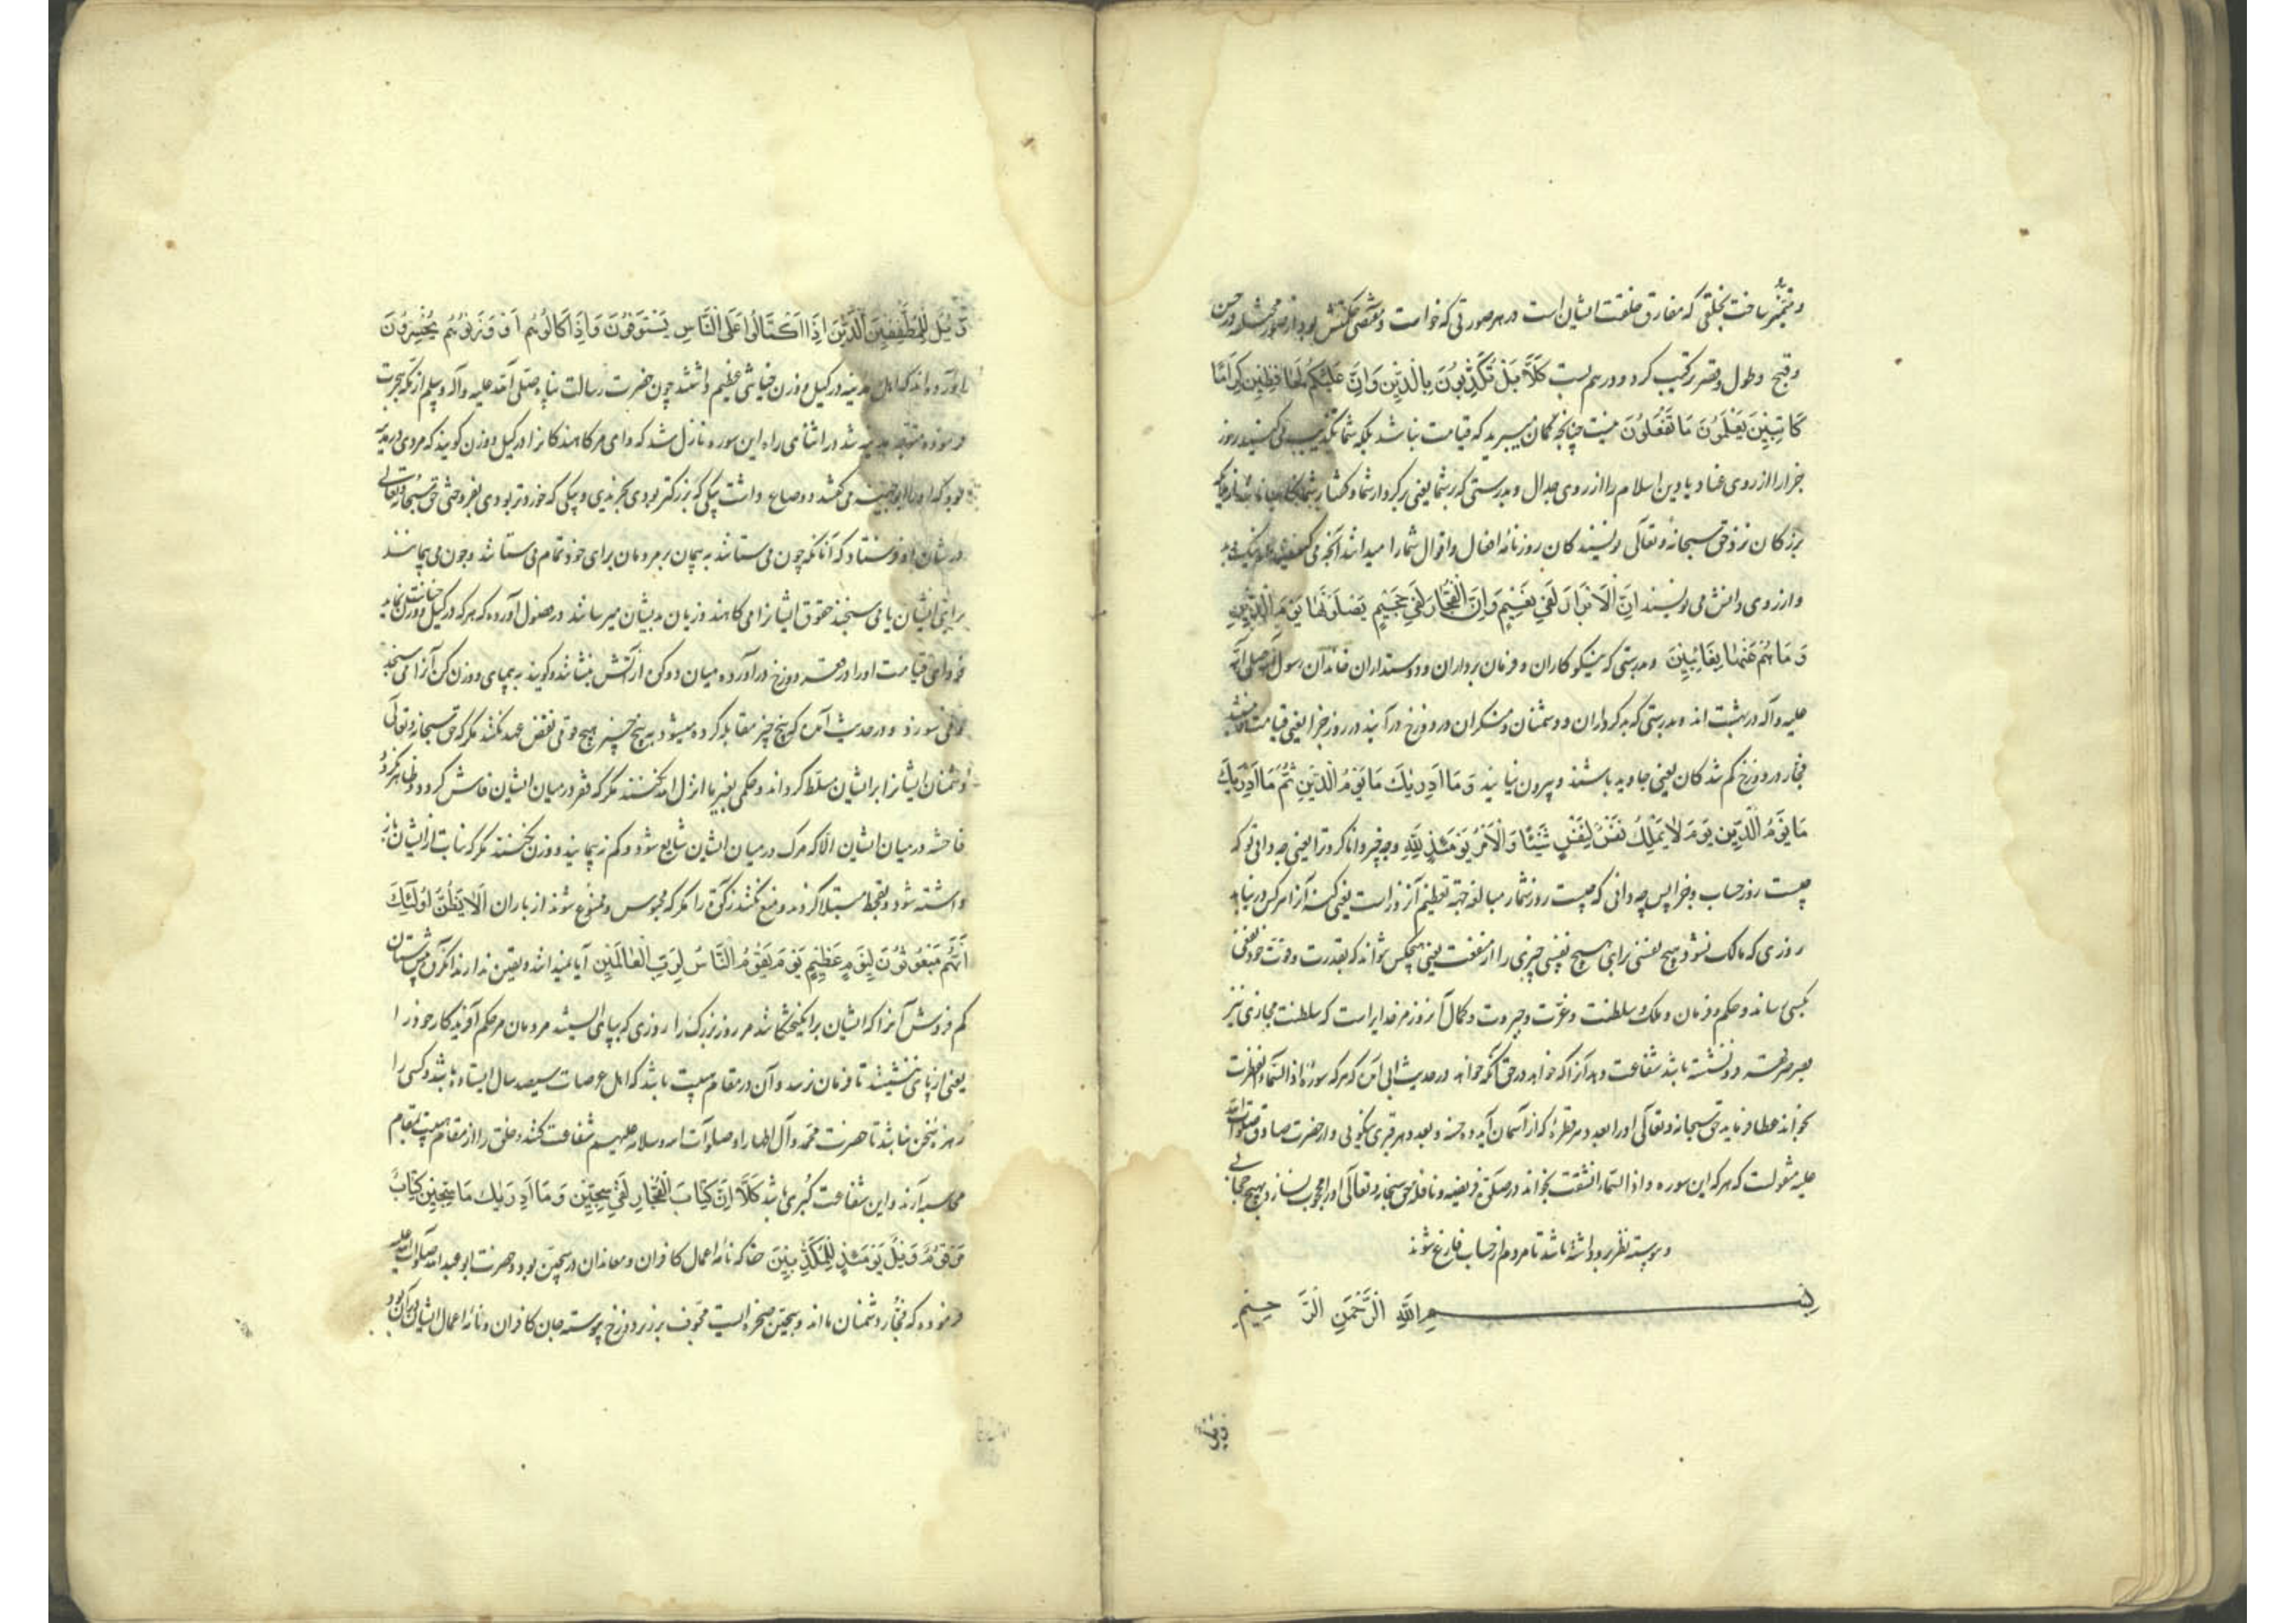 و متمیز ساخت بخلقتی که مفارق خلقت ایشان است در هر صورتی که خواست و مقتضی حکمتش بود از صور مختلفه در حسن
و قبح و طول و قصر ترکیب کرد و در هم بست كَلَّا بَلْ تُكَذِّبُونَ بِالدِّينِ وَإِنَّ عَلَيْكُمْ لَحَافِظِينَ كِرَامًا
كَاتِبِينَ يَعْلَمُونَ مَا تَفْعَلُونَ نیست چنانچه گمان میبرید که قیامت نباشد بلکه شما تکذیب می کنید بروز
جزا را از روی عناد یا دین اسلام را از روی جدال و بدرستی که بر شما یعنی بر کردار شما و گفتار شما نگاهبانانند از ملائکه
بزرگان نزد حق سبحانه و تعالی نویسندگان روزنامه افعال و اقوال شما را میدانند آنچه می کنید از نیک و بد
و از روی دانش می نویسند إِنَّ الْأَبْرَارَ لَفِي نَعِيمٍ وَإِنَّ الْفُجَّارَ لَفِي جَحِيمٍ يَصْلَوْنَهَا يَوْمَ الدِّينِ
وَمَا هُمْ عَنْهَا بِغَائِبِينَ و بدرستی که نیکوکاران و فرمان برداران و دوستداران خاندان رسول صلی الله
علیه و آله در بهشت اند و بدرستی که بدکرداران و دشمنان و منکران در دوزخ در آیند در روز جزا یعنی قیامت و نباشند
فجار در دوزخ گم شدگان یعنی جاوید باشند و بیرون نیایند وَمَا أَدْرَيٰكَ مَا يَوْمُ الدِّينِ ثُمَّ مَا أَدْرَيٰكَ
مَا يَوْمُ الدِّينِ يَوْمَ لَا يَمْلِكُ نَفْسٌ لِنَفْسٍ شَيْئًا وَالْأَمْرُ يَوْمَئِذٍ لِلَّهِ و چه چیز دانا کرد ترا یعنی چه دانی تو که
چیست روز حساب و جزا پس چه دانی که چیست روز شمار مبالغه جهة تعظیم آنروز است یعنی کنه آنرا هر کس در نیابد
روزی که مالک نشود هیچ نفسی برای هیچ نفسی چیزی را از منفعت یعنی هیچکس نتواند که بقدرت و قوت خود نفعی
بکسی رساند و حکم و فرمان و ملک و سلطنت و عزت و جبروت و کمال آنروز مر خدایراست که سلطنت مجازی نیز
شفاعت دهد آنرا که خواهد در حق آنکه خواهد در حدیث ابی آمن که هر که سوره اذا السماء انفطرت
بخواند عطا فرماید حق سبحانه و تعالی او را بعدد هر قطرهٔ که از آسمان آید ده حسنه و بعدد هر قبری نیکویی و از حضرت صادق صلوات الله
علیه منقولست که هر که این سوره و اذا السماء انشقت بخواند در صلوة فریضه و نافله حق سبحانه و تعالی او را محجوب نسازد بهیچ حجابی
و پیوسته نظر برو داشته باشد تا مردم از حساب فارغ شوند
بِسْمِ اللَّهِ الرَّحْمَنِ الرَّحِيمِ
ویل
وَيْلٌ لِلْمُطَفِّفِينَ الَّذِينَ إِذَا اكْتَالُوا عَلَى النَّاسِ يَسْتَوْفُونَ وَإِذَا كَالُوهُمْ أَوْ وَزَنُوهُمْ يُخْسِرُونَ
آورده اند که اهل مدینه در کیل و وزن خیانتی عظیم داشتند چون حضرت رسالت پناه صلی الله علیه و آله و سلم از مکه هجرت
فرموده متوجه مدینه شد در اثنای راه این سوره نازل شد که وای مر کاهندگانرا در کیل و وزن گویند که مردی در مدینه
بود که او را ابوجهینه می گفتند دو صاع داشت یکی که بزرگتر بودی بخریدی و یکی که خوردتر بودی بفروختی حق سبحانه و تعالی
در شان او فرستاد که آنانکه چون می ستانند به پیمان بر مردمان برای خود تمام می ستانند و چون می پیمانند
برای ایشان یا می سنجند حقوق ایشانرا می کاهند و زیان بدیشان میرسانند در فصول آورده که هر که در کیل و وزن خیانت نماید
فردای قیامت او را در قعر دوزخ در آورده میان دو کوه از آتش بنشانند و گویند به پیمای و وزن کن آنرا می سنجد
و می سوزد و در حدیث آمده که پنج چیز مقابله کرده میشود به پنج چیز هیچ قومی نقض عهد نکنند مگر که حق سبحانه و تعالی
دشمنان ایشانرا بر ایشان مسلط گرداند و حکمی بغیر ما انزل الله نکنند مگر که فقر در میان ایشان فاش گردد و ظاهر نگردد
فاحشه در میان ایشان الا که مرگ در میان ایشان شایع شود و کم نپیمایند و وزن نکنند مگر که نبات از ایشان باز
داشته شود و بقحط مبتلا گردند و منع نکنند زکوة را مگر که محبوس و ممنوع شوند از باران أَلَا يَظُنُّ أُولَٰئِكَ
أَنَّهُمْ مَبْعُوثُونَ لِيَوْمٍ عَظِيمٍ يَوْمَ يَقُومُ النَّاسُ لِرَبِّ الْعَالَمِينَ آیا نمیدانند و یقین ندارند آنگروه
کم فروش آنرا که ایشان برانگیختگانند مر روز بزرگ را روزی که بپای ایستند مردمان مر حکم آفریدگار خود را
یعنی از پای ننشینند تا فرمان نرسد و آن در مقام هیبت باشد که اهل عرصات سیصد سال ایستاده باشند و کسی را
زهره سخن نباشد تا حضرت محمد و آل اطهار او صلوات الله و سلامه علیهم شفاعت کنند و خلق را از مقام هیبت بمقام
محاسبه آرند و این شفاعت کبری باشد كَلَّا إِنَّ كِتَابَ الْفُجَّارِ لَفِي سِجِّينٍ وَمَا أَدْرَيٰكَ مَا سِجِّينٌ كِتَابٌ
مَرْقُومٌ وَيْلٌ يَوْمَئِذٍ لِلْمُكَذِّبِينَ حقا که نامه اعمال کافران و معاندان در سجین بود و حضرت ابو عبدالله صلوات الله علیه
فرموده که فجار دشمنان ما اند و سجین صخره ایست مجوف بر زبر دوزخ پیوسته جان کافران و نامه اعمال ایشان در آن بود